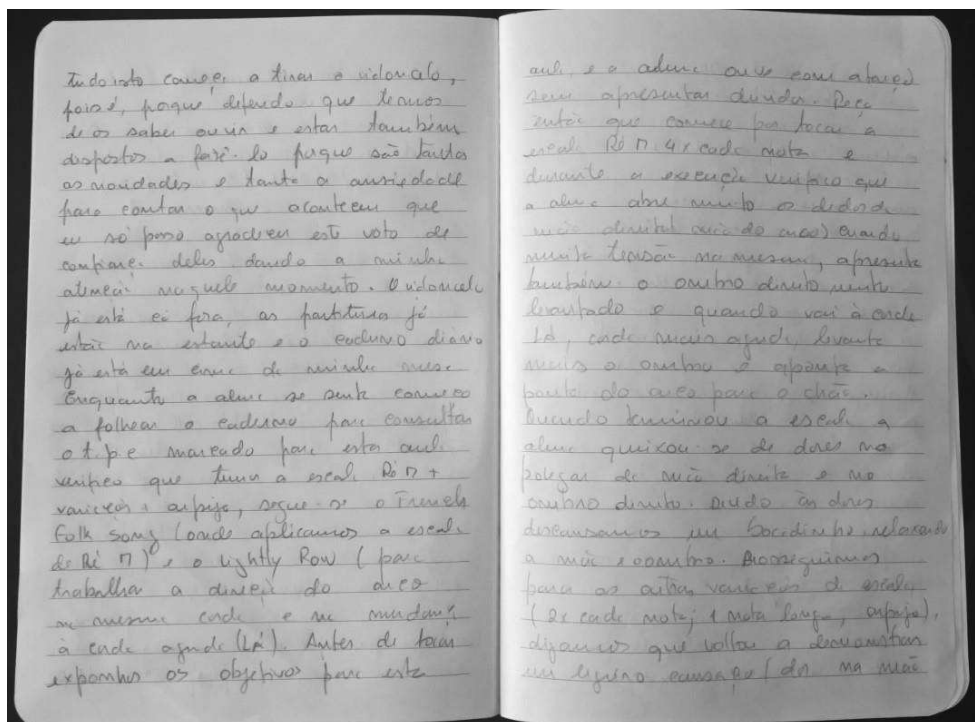 tudo isto começei a tirar o violoncelo,
pois é, porque defendo que temos
de os saber ouvir e estar também
dispostos a fazê-lo porque são tantas
as novidades e tanta a ansiedade
para contar o que aconteceu que
eu só posso agradecer este voto de
confiança deles dando a minha
atenção naquele momento. O violoncelo
já está cá fora, as partituras já
estão na estante e o caderno diário
já está em cima da minha mesa.
Enquanto a aluna se senta começo
a folhear o caderno para consultar
o t.p.c marcado para esta aula
verifico que temos a escala Ré M +
variações + arpejo, segue-se o French
Folk Song (onde aplicamos a escala
de Ré M) e o Lightly Row (para
trabalhar a direção do arco
na mesma corda e na mudança
à corda aguda (Lá). Antes de tocar
exponho os objetivos para esta
aula e a aluna ouve com atenção
sem apresentar dúvidas. Peço
então que comece por tocar a
escala Ré M 4x cada nota e
durante a execução verifico que
a aluna abre muito o dedo da
mão direita (mão do arco) criando
muita tensão na mesma, apresenta
também o ombro direito muito
levantado e quando vai à corda
Lá, corda mais aguda, levanta
mais o ombro e aponta a
ponta do arco para o chão.
Quando terminou a escala a
aluna queixou-se de dores no
polegar da mão direita e no
ombro direito. Devido às dores
descansamos um bocadinho, relaxando
a mão e o ombro. Prosseguimos
para as outras variações da escala
(2x cada nota; 1 nota longa, arpejo),
digamos que voltou a demonstrar
um ligeiro cansaço/dor na mão